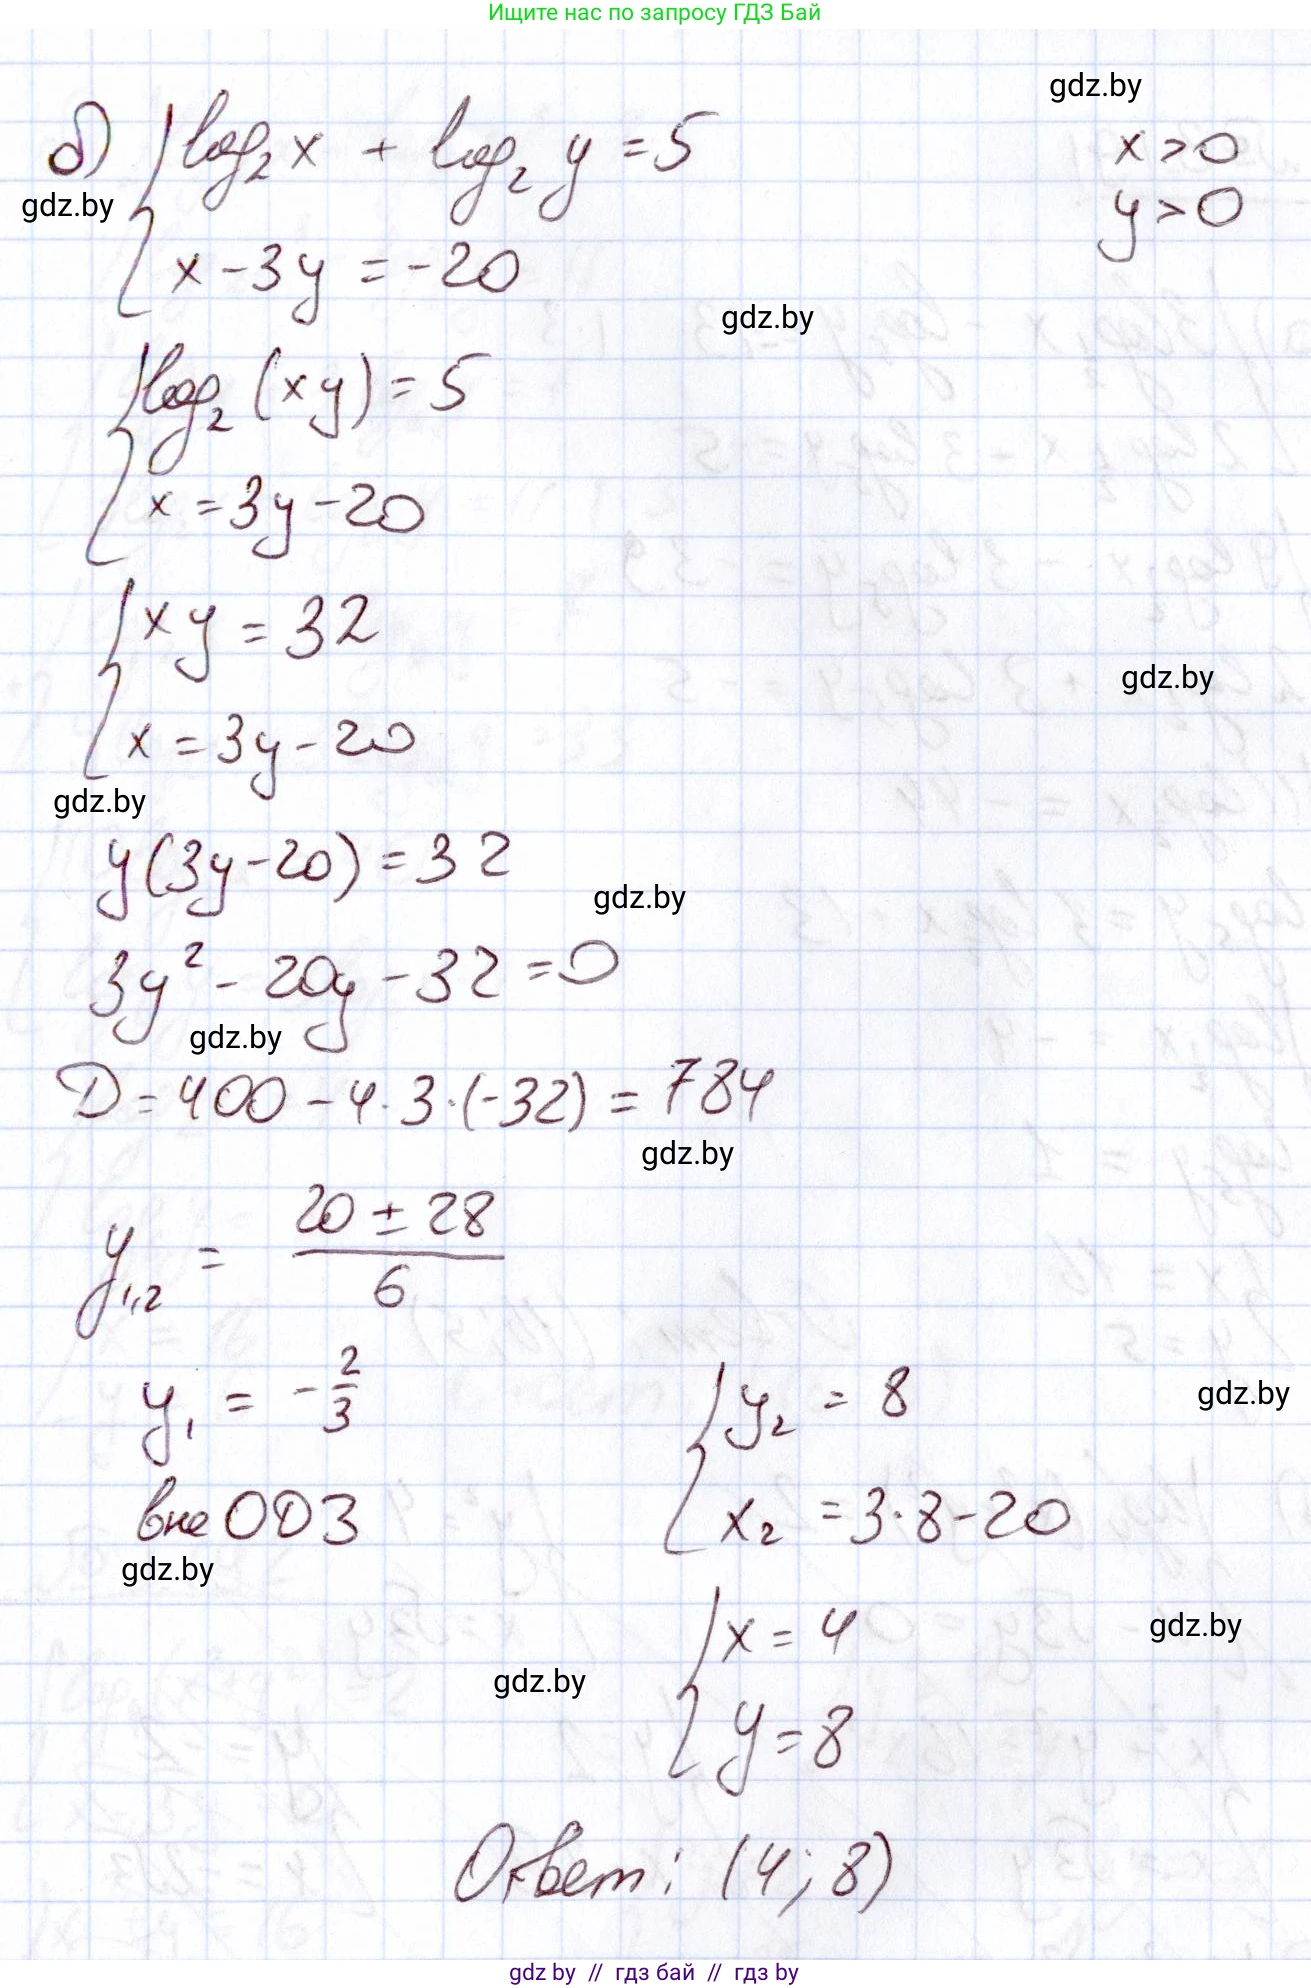 Ищите нас по запросу ГДЗ Бай
gdz.by
б) { log₂x + log₂ y = 5
x > 0
gdz.by
y > 0
x - 3y = -20
gdz.by
{ log₂ (xy) = 5
x = 3y - 20
{ xy = 32
gdz.by
x = 3y - 20
gdz.by
y(3y - 20) = 32
gdz.by
3y² - 20y - 32 = 0
gdz.by
D = 400 - 4·3·(-32) = 784
gdz.by
y₁,₂ = (20 ± 28)/6
y₁ = -2/3
{ y₂ = 8
gdz.by
вне ОДЗ
x₂ = 3·8 - 20
gdz.by
{ x = 4
gdz.by
gdz.by
y = 8
Ответ: (4; 8)
gdz by // гдз бай // гдз by